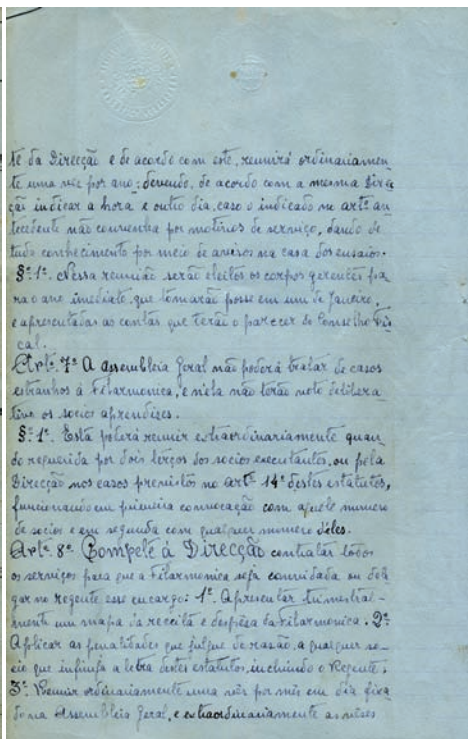 te da Direcção e de acordo com este, reunirá ordinariamen
te uma vês por ano; devendo, de acordo com a mesma Direc
ção indicar a hora e outro dia, caso o indicado no artº an
tecedente não convenha por motivos de serviço, dando de
tudo conhecimento por meio de avisos na casa dos ensaios.
§º 1º. Nessa reunião serão eleitos os corpos gerentes pa
ra o ano imediato, que tomarão posse em um de Janeiro,
e apresentadas as contas que terão o parecer do Conselho Fis
cal.
Artº 7º A assembleia Geral não poderá tratar de casos
estranhos á Filarmonica, e nela não terão voto delibera
tivo os socios aprendizes.
§º 1º. Esta poderá reunir extraordinariamente quan
do requerida por dois terços dos socios executantes, ou pela
Direcção nos casos previstos no artº 14º destes estatutos,
funcionando em primeira convocação com aquele numero
de socios e em segunda com qualquer numero deles.
Artº 8º Compete á Direcção contratar todos
os serviços para que a Filarmonica seja convidada ou dele
gar no regente esse encargo: 1º Apresentar trimestral-
mente um mapa da receita e despêsa da Filarmonica. 2º
Aplicar as penalidades que julgue de rasão, a qualquer so-
cio que infrinja a letra destes estatutos, incluindo o Regente.
3º Reunir ordinariamente uma vês por mês em dia fixa
do na Assembleia Geral, e extraordinariamente as vêses